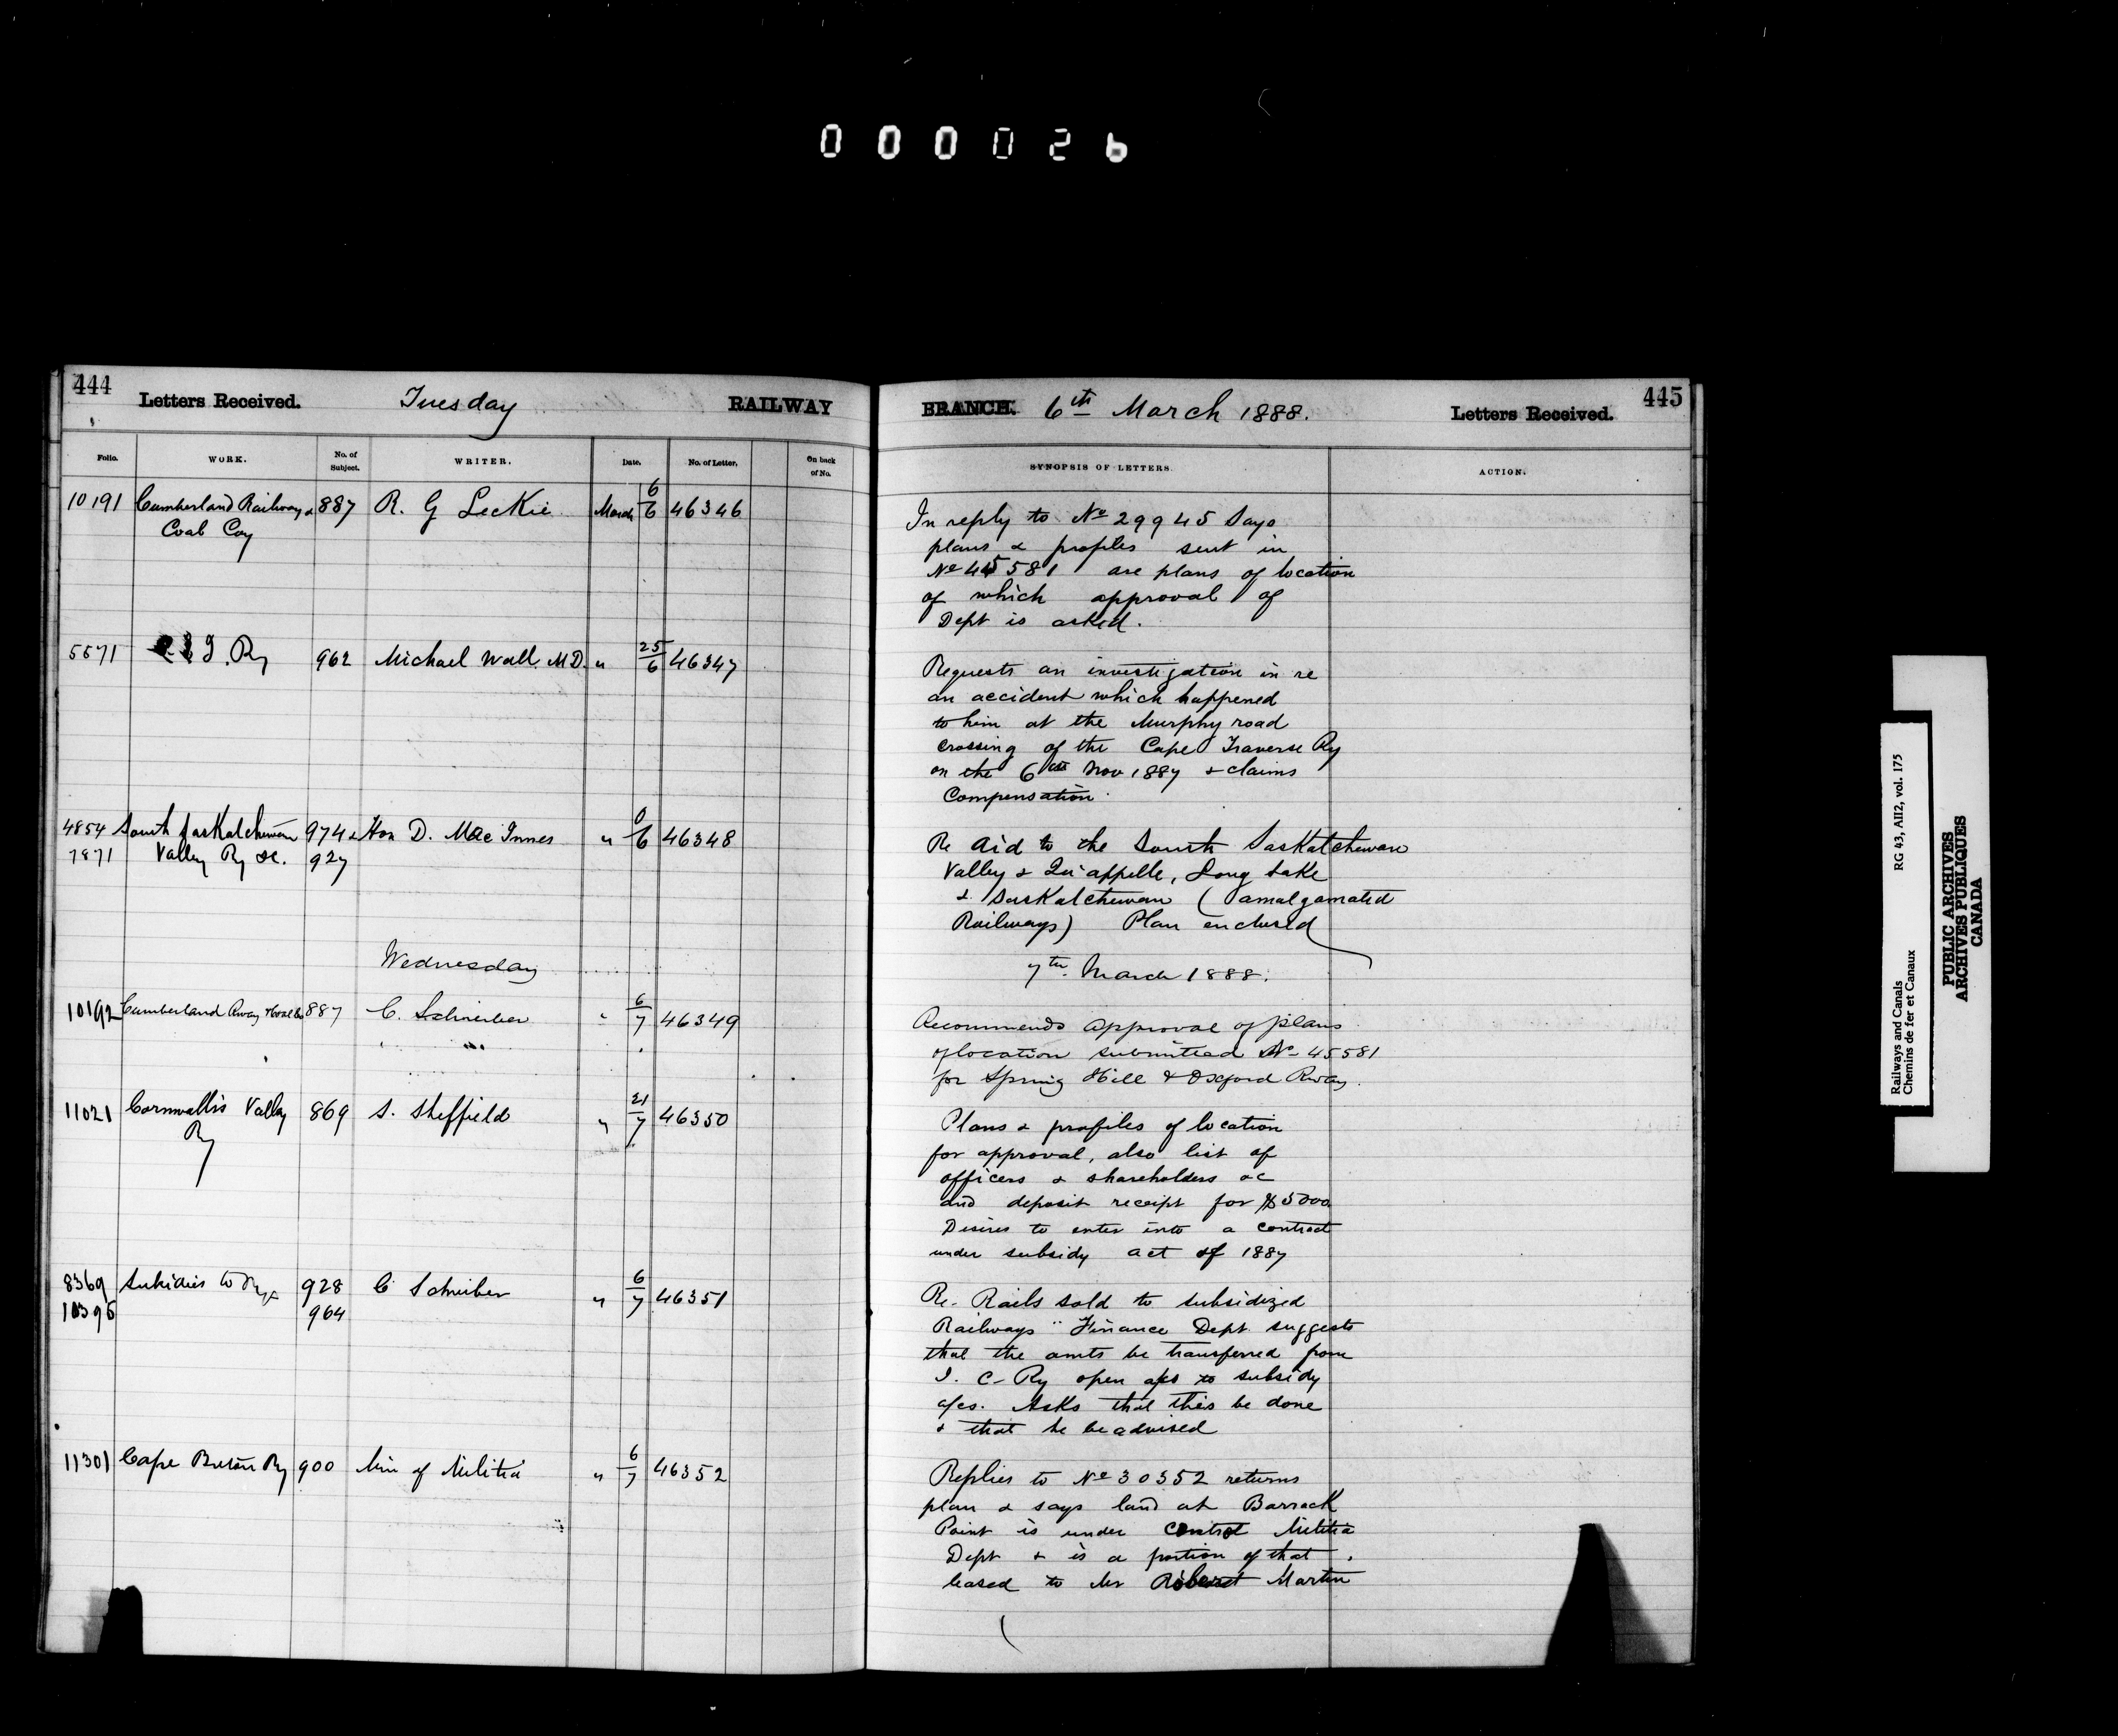 000026
444
Letters Received.
Tuesday
RAILWAY
Folio.
WORK.
No. of Subject.
WRITER.
Date.
No. of Letter.
On back of No.
10191 Cumberland Railway & 887 R. G Leckie March 6/6 46346
Coal Coy
5571 Ry 962 Michael Wall M.D. " 25/6 46347
4854 South Saskatchewan 974 & Hon D. MacInnes " 6 46348
7871 Valley Ry &c. 927
Wednesday
10192 Cumberland Rway & Coal Co 887 C. Schreiber " 6/7 46349
11021 Cornwallis Valley 869 S. Sheffield " 21/7 46350
Ry
8369 Subsidies to Rys 928 C Schreiber " 6/7 46351
10396 964
11301 Cape Breton Ry 900 Min of Militia " 6/7 46352
BRANCH.
6th March 1888.
Letters Received.
445
SYNOPSIS OF LETTERS.
ACTION.
In reply to No 29945 says
plans & profiles sent in
No 45581 are plans of location
of which approval of
Dept is asked.
Requests an investigation in re
an accident which happened
to him at the Murphy road
crossing of the Cape Traverse Ry
on the 6th Nov 1887 & claims
Compensation.
Re aid to the South Saskatchewan
Valley & Qu'appelle, Long Lake
& Saskatchewan (amalgamated
Railways) Plan enclosed
7th March 1888.
Recommends approval of plans
of location submitted No 45581
for Spring Hill & Oxford Rway.
Plans & profiles of location
for approval, also list of
officers & shareholders &c
and deposit receipt for $5000
Desires to enter into a contract
under subsidy act of 1887
Re. Rails sold to subsidized
Railways " Finance Dept. suggests
that the amts be transferred from
I. C. Ry open a/cs to subsidy
a/cs. Asks that this be done
& that he be advised
Replies to No 30352 returns
plan & says land at Barrack
Point is under control Militia
Dept & is a portion of that
leased to Mr Robert Martin
Railways and Canals
Chemins de fer et Canaux
RG 43, AII2, vol. 175
PUBLIC ARCHIVES
ARCHIVES PUBLIQUES
CANADA